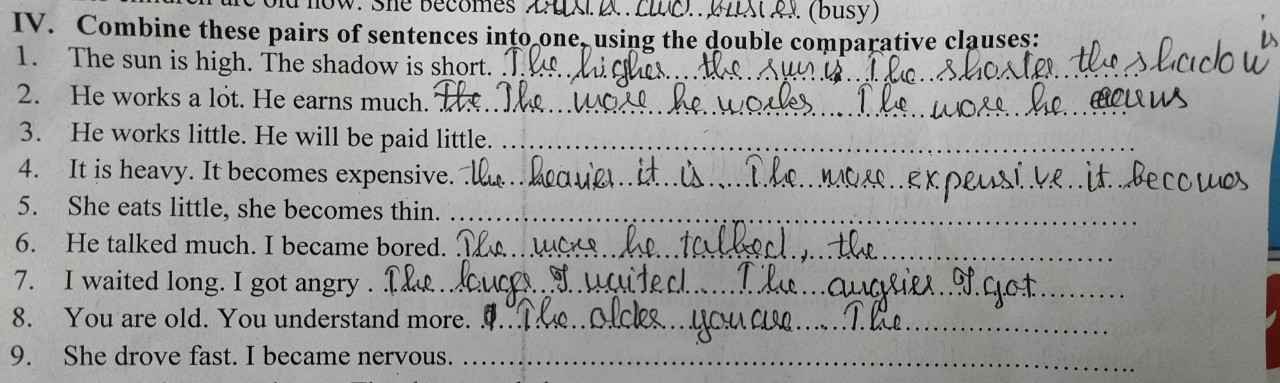 are old now. She becomes busier and busier (busy)
IV. Combine these pairs of sentences into one, using the double comparative clauses:
1. The sun is high. The shadow is short. The higher the sun is The shorter the shadow is
2. He works a lot. He earns much. The The more he works The more he earns
3. He works little. He will be paid little.
4. It is heavy. It becomes expensive. The heavier it is The more expensive it becomes
5. She eats little, she becomes thin.
6. He talked much. I became bored. The more he talked, the
7. I waited long. I got angry. The longer I waited The angrier I got
8. You are old. You understand more. The older you are The
9. She drove fast. I became nervous.